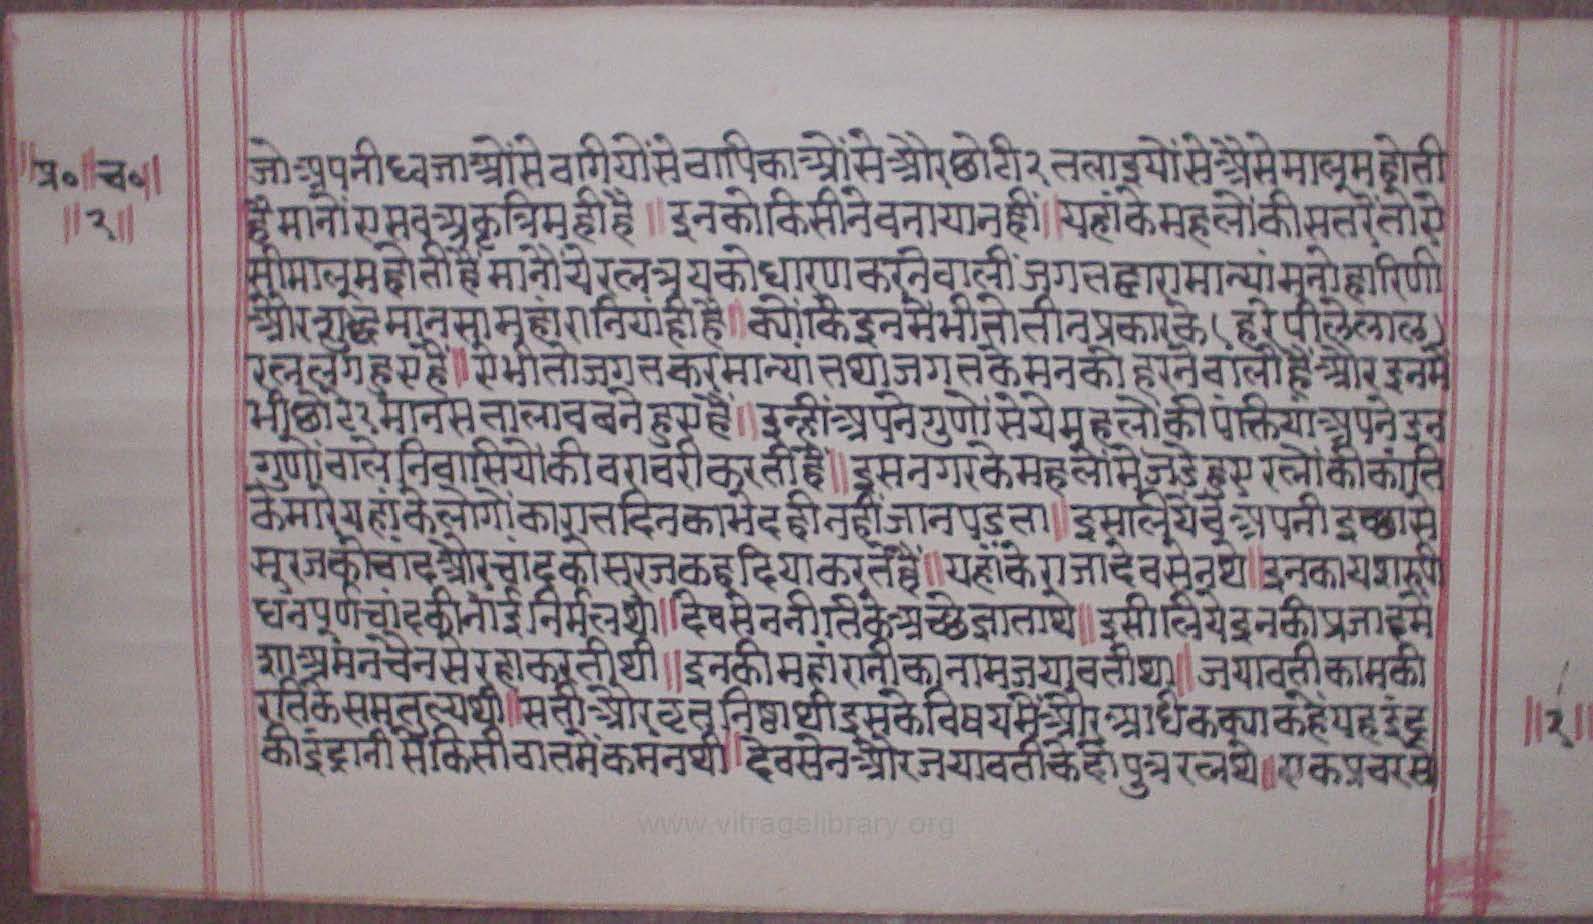 ॥प्र०॥च०॥
॥२॥
जो अपनी ध्वजाओं से वगीयों से वापिकाओं से और छोटी २ तलाइयों से अैसे मालूम होती
है मानों ए सव अकृत्रिम ही है ॥ इनको किसीने वनाया नहीं ॥ यहां के महलों की सतरें तो ऐ
सी मालूम होती हैं मानौं ये रत्नत्रय को धारण करने वालीं जगतद्वारा मान्यां मनोहारिणी
और शुद्ध मानसा महांरानियां ही हैं ॥ क्योंकि इनमैं भी तो तीन प्रकार के (हरे पीले लाल)
रत्न लगे हुए हैं ॥ ऐ भी तो जगत कर मान्यां तथा जगत के मन को हरने वाली हैं और इनमें
भी छोटे २ मानस तालाव बने हुए हैं ॥ इन्हीं अपने गुणों से ये महलों की पंक्तियां अपने इन
गुणों वाले निवासियों की वरावरी करती हैं ॥ इस नगर के महलों में जडे हुए रत्नों की कांति
के मारे यहां के लोगों का रात दिन का भेद ही नहीं जान पडता ॥ इसलिये वे अपनी इच्छा से
सूरज को चांद और चांद को सूरज कह दिया करते हैं ॥ यहाँ के राजा देवसेन थे ॥ इनका यशरूपी
धन पूर्ण चांद की नांई निर्मल था ॥ देवसेन नीति के अच्छे ज्ञाता थे ॥ इसीलिये इनकी प्रजा हमे
शा अमन चैन से रहा करती थी ॥ इनकी महांरानी का नाम जयावती था ॥ जयावती काम की
रति के सम तुल्य थी ॥ सती और वृत निष्ठा थी इसके विषय में और अधिक क्या कहें यह इंद्र
की इंद्रानी से किसी वात में कम न थी ॥ देवसेन और जयावती के दो पुत्र रत्न थे ॥ एक प्रवरसे
॥२॥
www.vitragelibrary.org